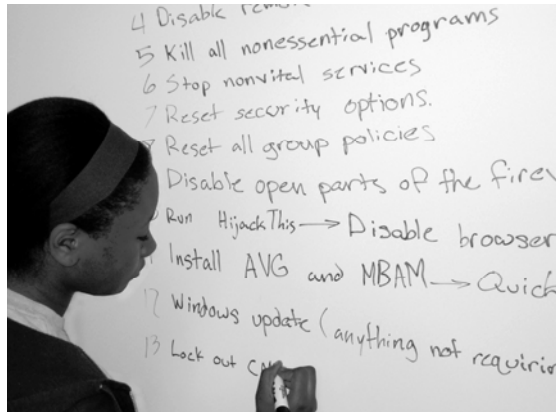 4 Disable
5 Kill all nonessential programs
6 Stop nonvital services
7 Reset security options.
Reset all group policies
Disable open parts of the
Run HijackThis → Disable browser
Install AVG and MBAM → Quick
12 Windows update (anything not
13 Lock out